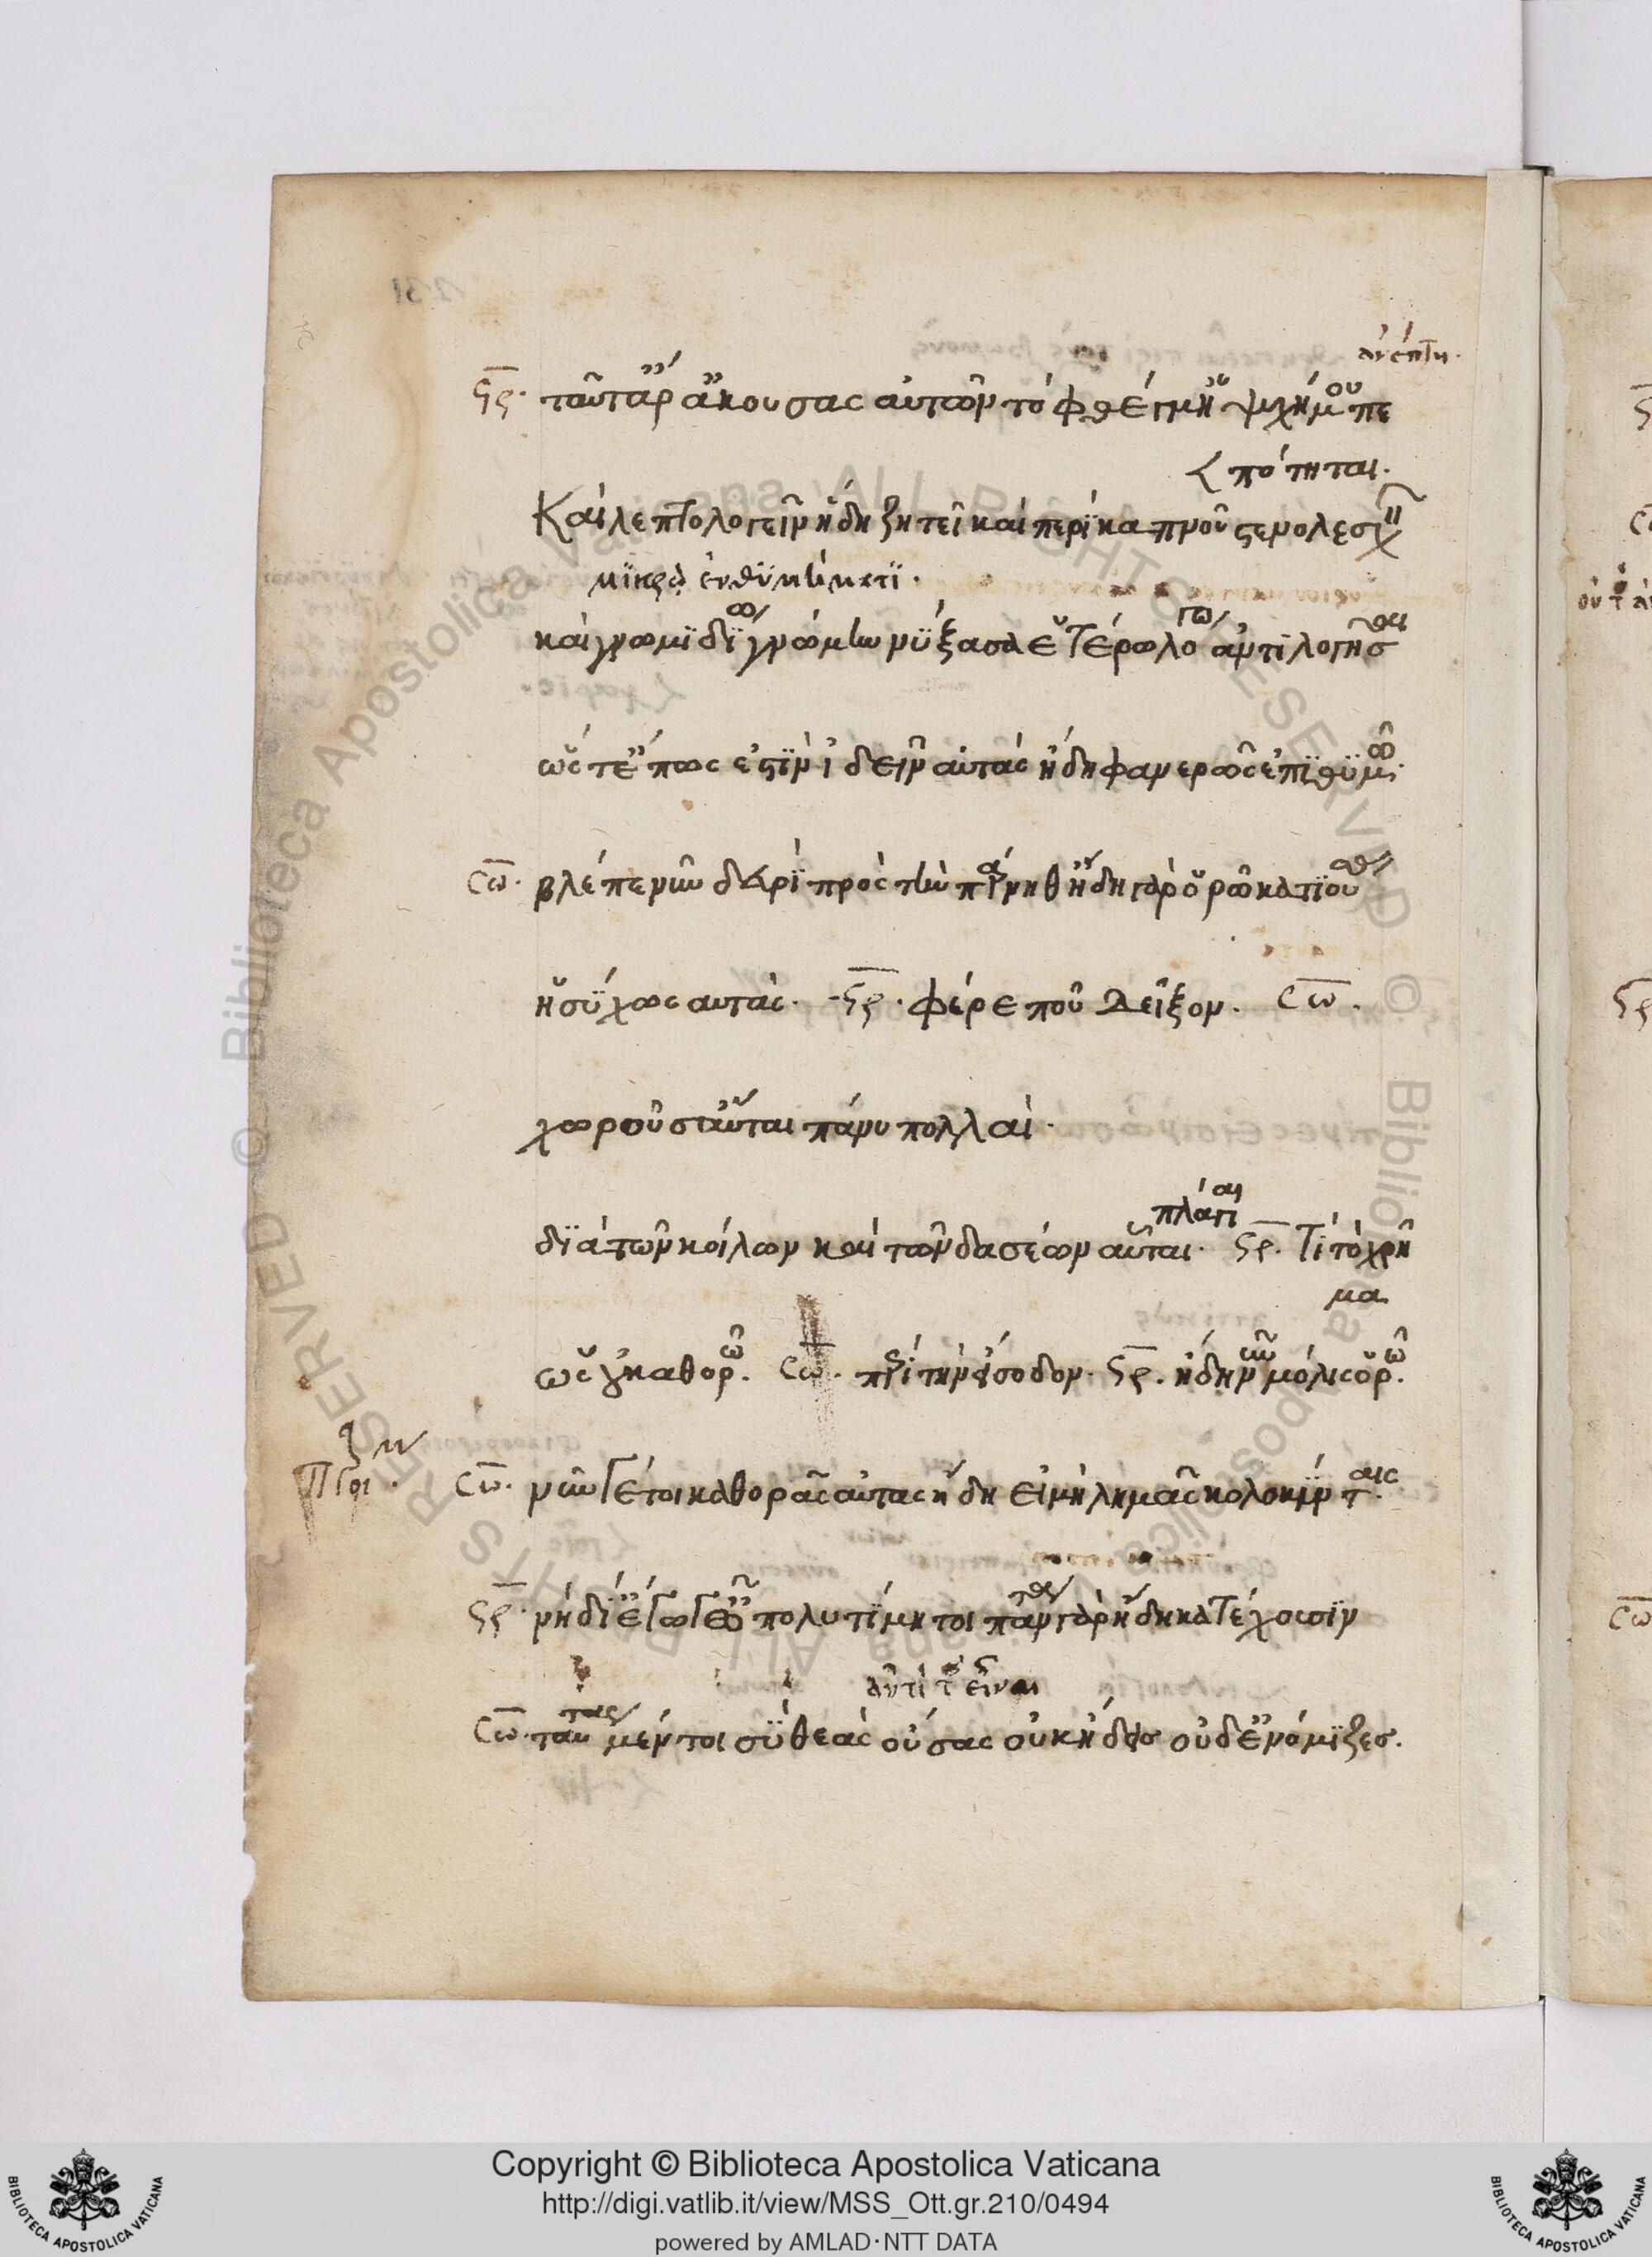 ἀνέπτη.
Στρ. ταῦτ' ἄρ' ἀκούσας αὐτῶν τὸ φθέγμ' ἡ ψυχή μου πε
πότηται.
Καὶ λεπτολογεῖν ἤδη ζητεῖ καὶ περὶ καπνοῦ στενολεσχεῖν
μικρῷ ἐνθυμήματι.
καὶ γνωμιδίῳ γνώμην νύξασα ἑτέρῳ λόγῳ ἀντιλογῆσαι
ὥστ' εἴ πως ἐστὶν ἰδεῖν αὐτὰς ἤδη φανερῶς ἐπιθυμῶ.
Σω. βλέπε νῦν δευρὶ πρὸς τὴν πάρνηθ' ἤδη γὰρ ὁρῶ κατιούσας
ἡσύχως αὐτάς. Στρ. φέρε ποῦ δεῖξον. Σω.
χωροῦσ' αὗται πάνυ πολλαὶ.
πλάγιαι
διὰ τῶν κοίλων καὶ τῶν δασέων αὗται. Στρ. τί τὸ χρῆ
μα
ὡς οὐ καθορῶ. Σω. παρὰ τὴν εἴσοδον. Στρ. ἤδη νῦν μόλις ὁρῶ.
Σω. νῦν γέ τοι καθορᾷς αὐτὰς ἤδη εἰ μὴ λημᾷς κολοκύνταις
Στρ. νὴ δί' ἔγωγε ὦ πολυτίμητοι πάντα γὰρ ἤδη κατέχουσιν
ἀντὶ τοῦ εἶναι
Σω. ταύτας μέντοι σὺ θεὰς οὔσας οὐκ ᾔδεις οὐδ' ἐνόμιζες.
Copyright © Biblioteca Apostolica Vaticana
http://digi.vatlib.it/view/MSS_Ott.gr.210/0494
powered by AMLAD·NTT DATA